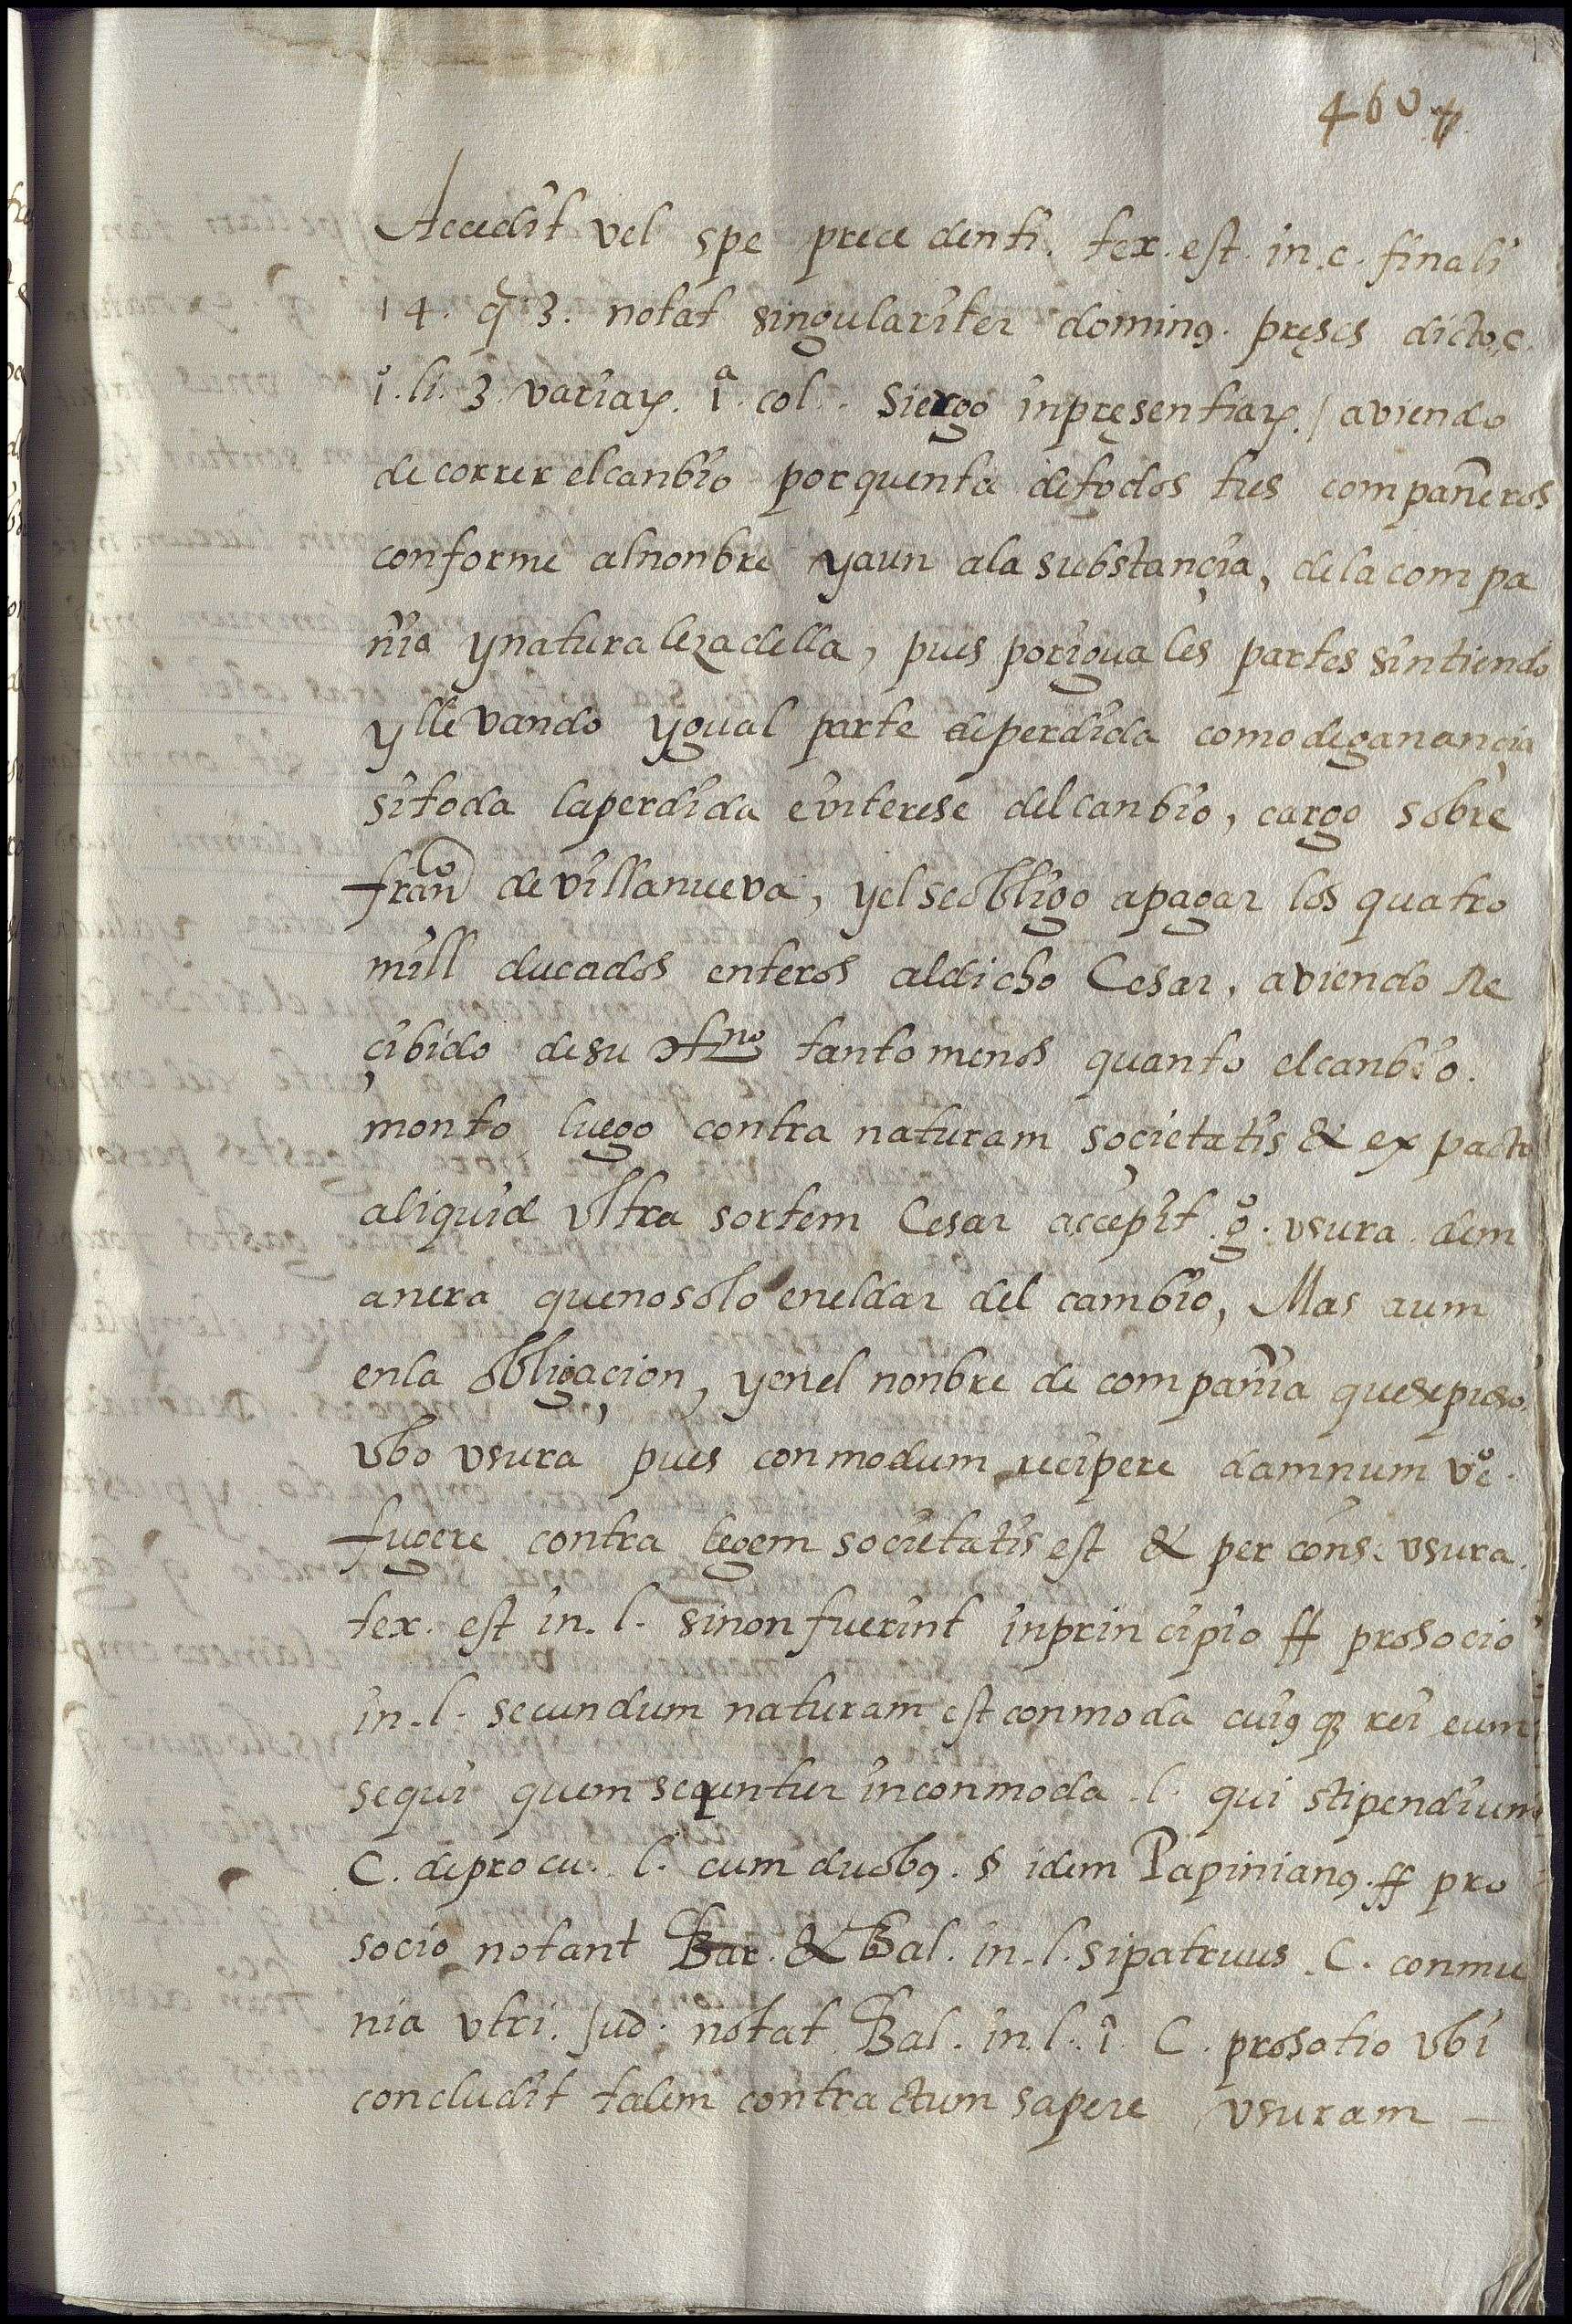 460
Accedit vel spe precedenti. tex. est. in. c. finali
14. q̃ 3. notat singulariter dominꝯ. pręses dicto. c.
i.º li. 3. variaꝝ. iª. col. Si ergo in pręsentiaꝝ. / aviendo
de correr el canbio por quenta de todos tres compañeros
conforme al nonbre y aun a la substançia, de la compa
ñia y naturaleza della, pues por iguales partes sintiendo
y llevando ygual parte de perdida como de ganançia
si toda la perdida e interese del canbio, cargo sobre
franco de villanueva, y el se obligo a pagar los quatro
mill ducados enteros al dicho Cesar, aviendo Re
çibido de su tanto menos quanto el canbio.
monto, luego contra naturam soçietatis & ex pacto
aliquid vltra sortem Cesar açcepit. gº. vsura. dem
anera que no solo en el dar del cambio, Mas aum
en la obligaçion, y en el nonbre de compañia que se puso.
vbo vsura pues conmodum recipere damnum vº.
fugere contra legem societatis est & per cons. vsura.
tex. est in. l. si non fuerint in principio ff pro socio
in. l. secundum naturam est conmoda cuiꝯq̃ rei eum
sequi quem sequntur inconmoda. l. qui stipendium
C. de procu. l. cum duobꝯ. § idem Papinianꝯ. ff pro
socio notant Bar. & Bal. in. l. si patruus. C. conmu
nia vtri. Jud. notat Bal. in. l. i. C. pro sotio vbi
concludit talem contractum sapere vsuram —